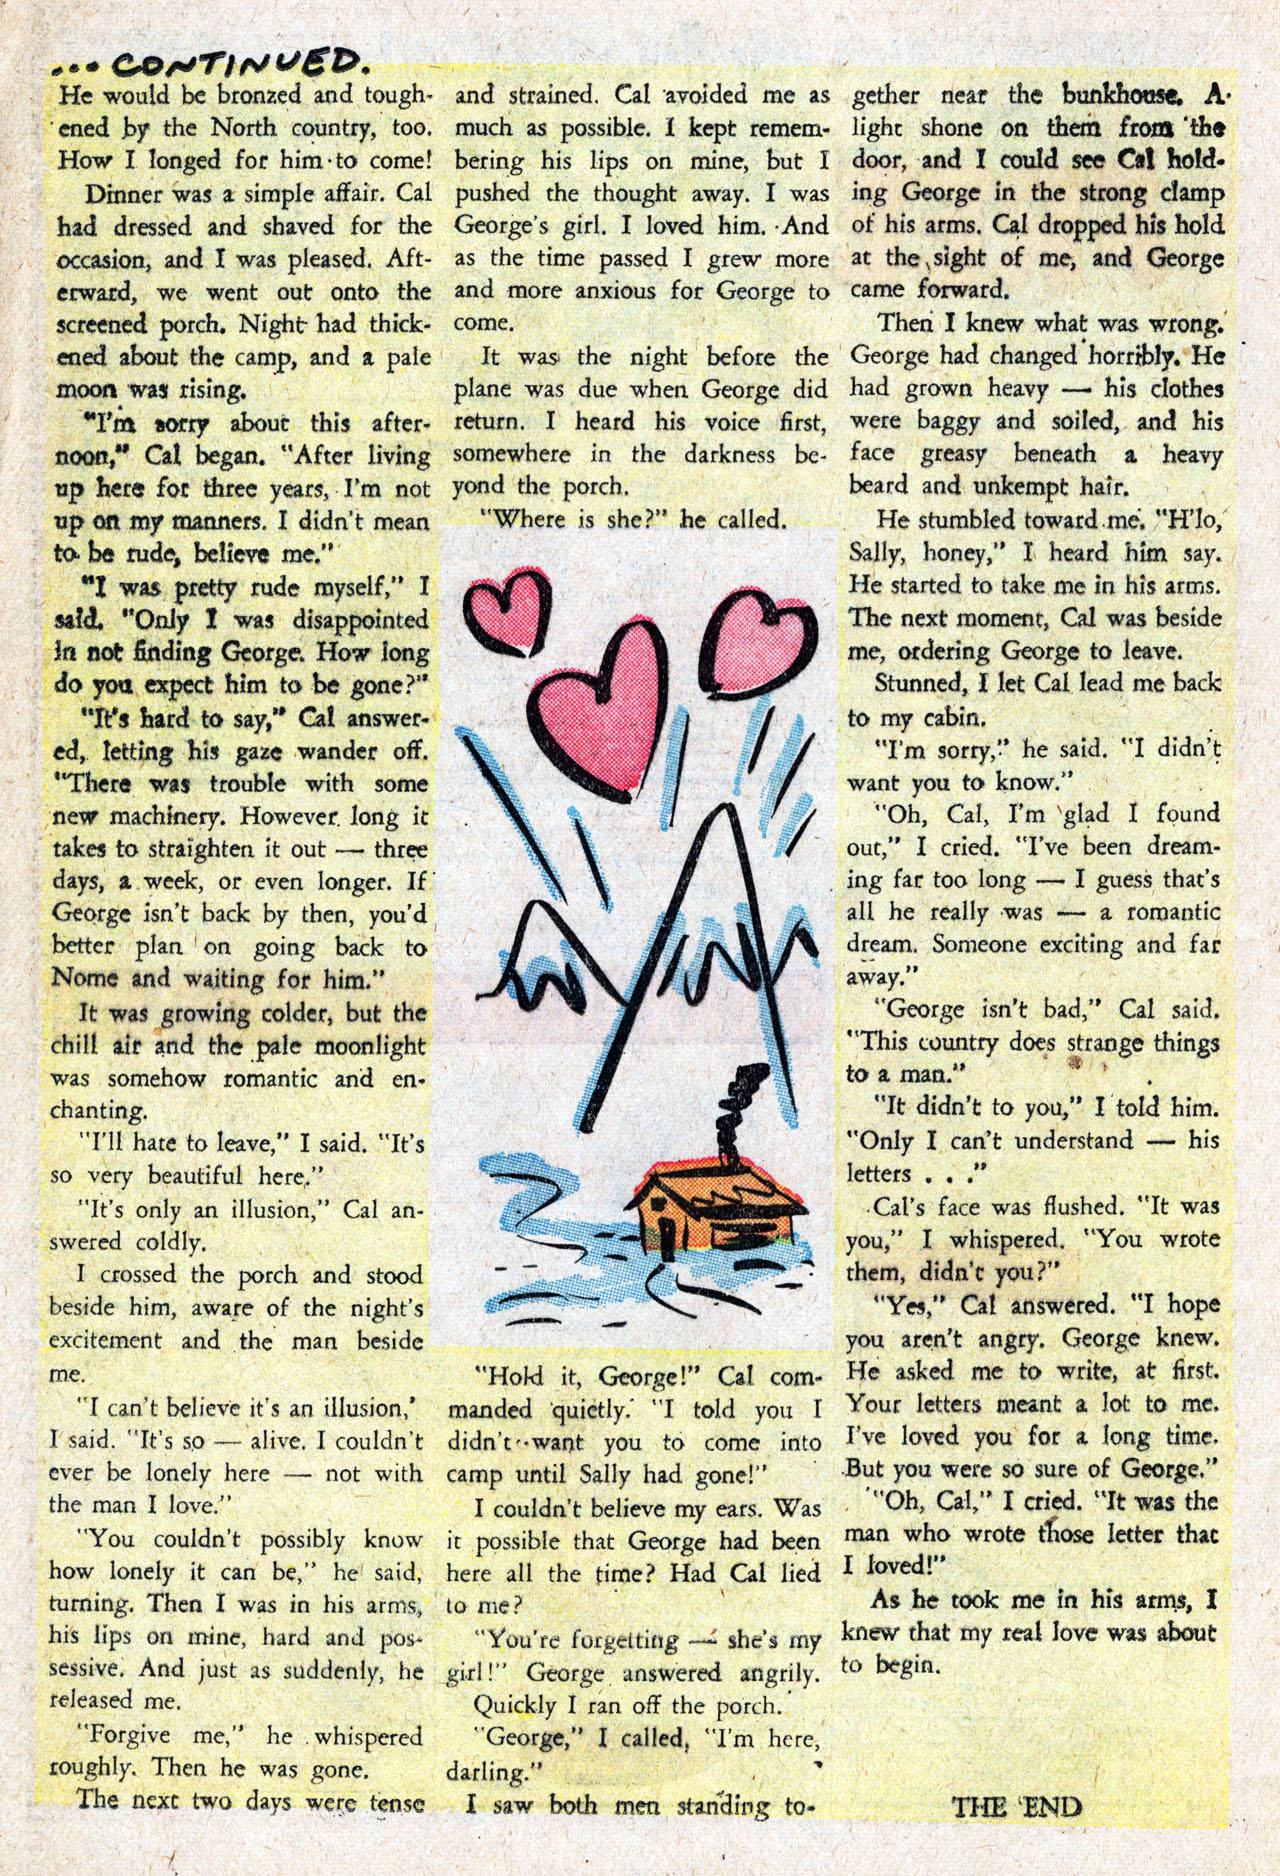 ... CONTINUED.
He would be bronzed and tough-
ened by the North country, too.
How I longed for him to come!
Dinner was a simple affair. Cal
had dressed and shaved for the
occasion, and I was pleased. Aft-
erward, we went out onto the
screened porch. Night had thick-
ened about the camp, and a pale
moon was rising.
"I'm sorry about this after-
noon," Cal began. "After living
up here for three years, I'm not
up on my manners. I didn't mean
to be rude, believe me."
"I was pretty rude myself," I
said. "Only I was disappointed
in not finding George. How long
do you expect him to be gone?"
"It's hard to say," Cal answer-
ed, letting his gaze wander off.
"There was trouble with some
new machinery. However long it
takes to straighten it out — three
days, a week, or even longer. If
George isn't back by then, you'd
better plan on going back to
Nome and waiting for him."
It was growing colder, but the
chill air and the pale moonlight
was somehow romantic and en-
chanting.
"I'll hate to leave," I said. "It's
so very beautiful here."
"It's only an illusion," Cal an-
swered coldly.
I crossed the porch and stood
beside him, aware of the night's
excitement and the man beside
me.
"I can't believe it's an illusion,'
I said. "It's so — alive. I couldn't
ever be lonely here — not with
the man I love."
"You couldn't possibly know
how lonely it can be," he said,
turning. Then I was in his arms,
his lips on mine, hard and pos-
sessive. And just as suddenly, he
released me.
"Forgive me," he whispered
roughly. Then he was gone.
The next two days were tense
and strained. Cal avoided me as
much as possible. I kept remem-
bering his lips on mine, but I
pushed the thought away. I was
George's girl. I loved him. And
as the time passed I grew more
and more anxious for George to
come.
It was the night before the
plane was due when George did
return. I heard his voice first,
somewhere in the darkness be-
yond the porch.
"Where is she?" he called.
"Hold it, George!" Cal com-
manded quietly. "I told you I
didn't want you to come into
camp until Sally had gone!"
I couldn't believe my ears. Was
it possible that George had been
here all the time? Had Cal lied
to me?
"You're forgetting — she's my
girl!" George answered angrily.
Quickly I ran off the porch.
"George," I called, "I'm here,
darling."
I saw both men standing to-
gether near the bunkhouse. A
light shone on them from the
door, and I could see Cal hold-
ing George in the strong clamp
of his arms. Cal dropped his hold
at the sight of me, and George
came forward.
Then I knew what was wrong.
George had changed horribly. He
had grown heavy — his clothes
were baggy and soiled, and his
face greasy beneath a heavy
beard and unkempt hair.
He stumbled toward me. "H'lo,
Sally, honey," I heard him say.
He started to take me in his arms.
The next moment, Cal was beside
me, ordering George to leave.
Stunned, I let Cal lead me back
to my cabin.
"I'm sorry," he said. "I didn't
want you to know."
"Oh, Cal, I'm glad I found
out," I cried. "I've been dream-
ing far too long — I guess that's
all he really was — a romantic
dream. Someone exciting and far
away."
"George isn't bad," Cal said.
"This country does strange things
to a man."
"It didn't to you," I told him.
"Only I can't understand — his
letters . . ."
Cal's face was flushed. "It was
you," I whispered. "You wrote
them, didn't you?"
"Yes," Cal answered. "I hope
you aren't angry. George knew.
He asked me to write, at first.
Your letters meant a lot to me.
I've loved you for a long time.
But you were so sure of George."
"Oh, Cal," I cried. "It was the
man who wrote those letter that
I loved!"
As he took me in his arms, I
knew that my real love was about
to begin.
THE END